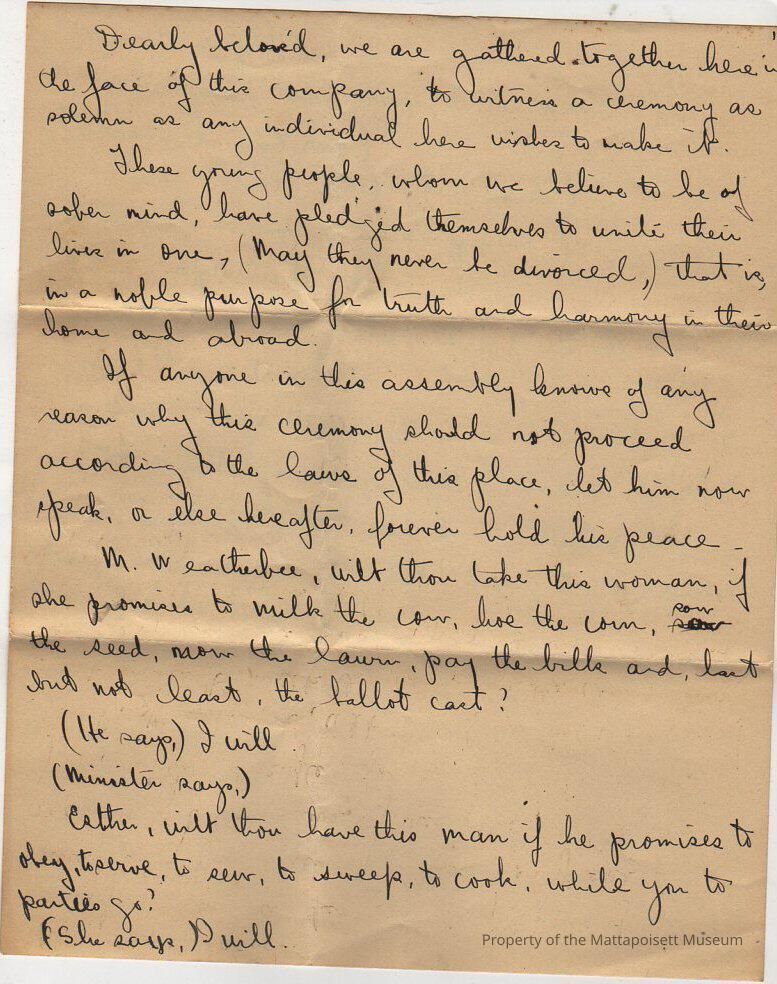 Dearly belov'd, we are gathered together here in
the face of this company, to witness a ceremony as
solemn as any individual here wishes to make it.
These young people, whom we believe to be of
sober mind, have pledged themselves to unite their
lives in one, (May they never be divorced,) that is,
in a noble purpose for truth and harmony in their
home and abroad.
If anyone in this assembly knows of any
reason why this ceremony should not proceed
according to the laws of this place, let him now
speak, or else hereafter, forever hold his peace -
M. Weatherbee, wilt thou take this woman, if
she promises to milk the cow, hoe the corn, sow
the seed, mow the lawn, pay the bills and, last
but not least, the ballot cast?
(He says,) I will
(Minister says,)
Esther, wilt thou have this man if he promises to
obey, to serve, to sew, to sweep, to cook, while you to
parties go?
(She says,) I will.
Property of the Mattapoisett Museum